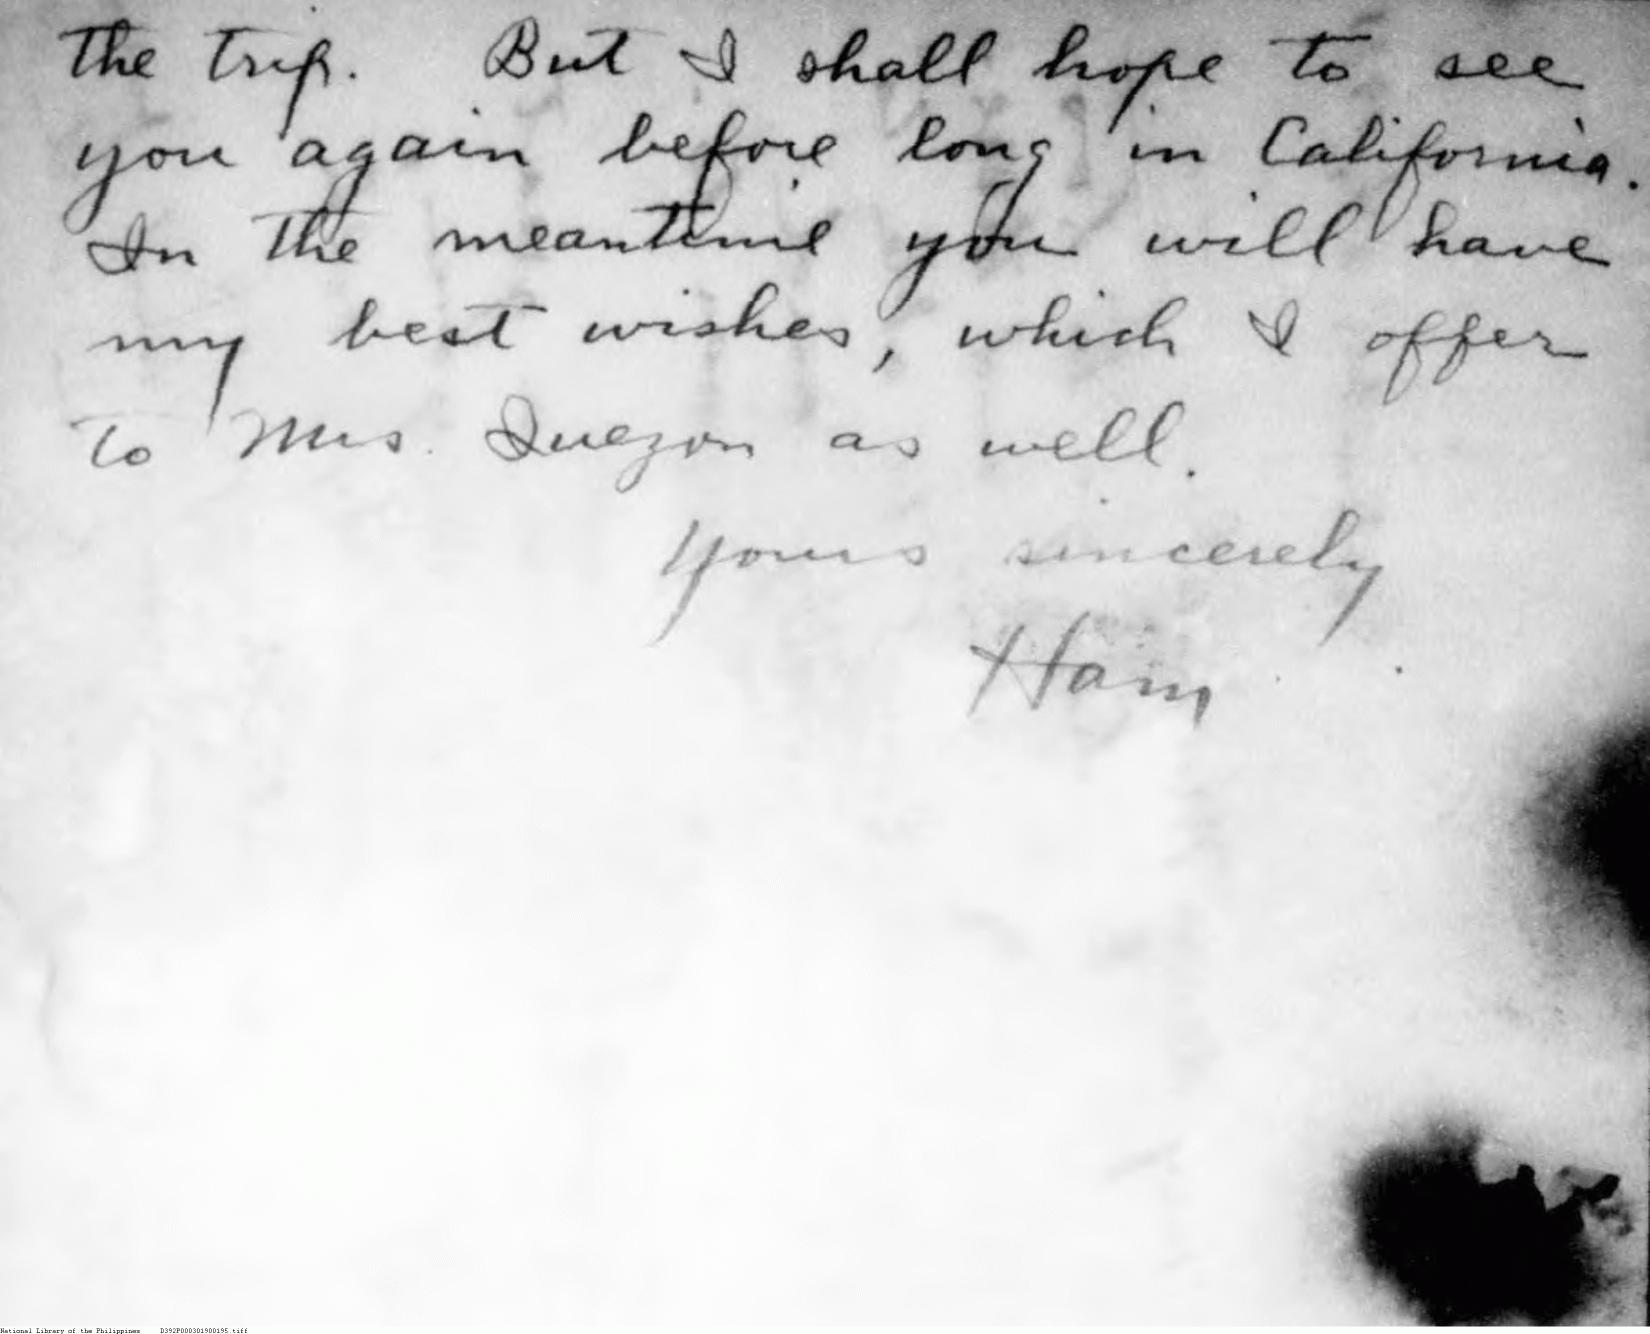 the trip. But I shall hope to see
you again before long in California.
In the meantime you will have
my best wishes, which I offer
to Mrs. Quezon as well.
Yours sincerely
Ham
National Library of the Philippines D392P000301900195.tiff